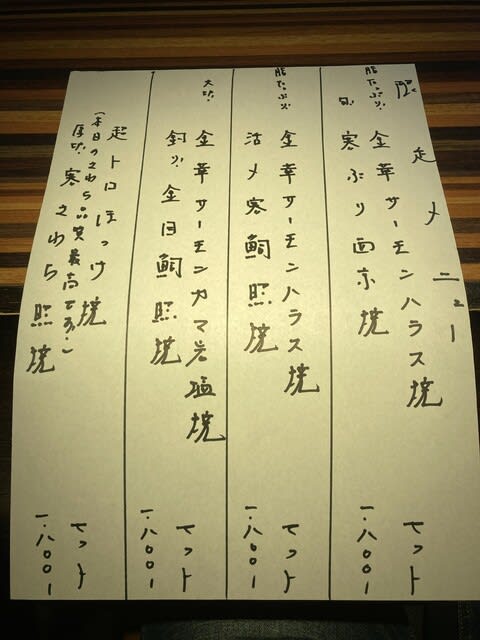 走メニュー
脂たっぷり 金華サーモンハラス焼 セット
旬 寒ぶり西京焼 一.八〇〇ー
脂たっぷり 金華サーモンハラス焼 セット
活〆寒鯛照焼 一.八〇〇ー
大切り 金華サーモンカマ岩塩焼 セット
釣り金目鯛照焼 一.八〇〇ー
超トロほっけ焼 セット
(本日のさわら品質最高です!)
厚切 寒さわら照焼 一.八〇〇ー